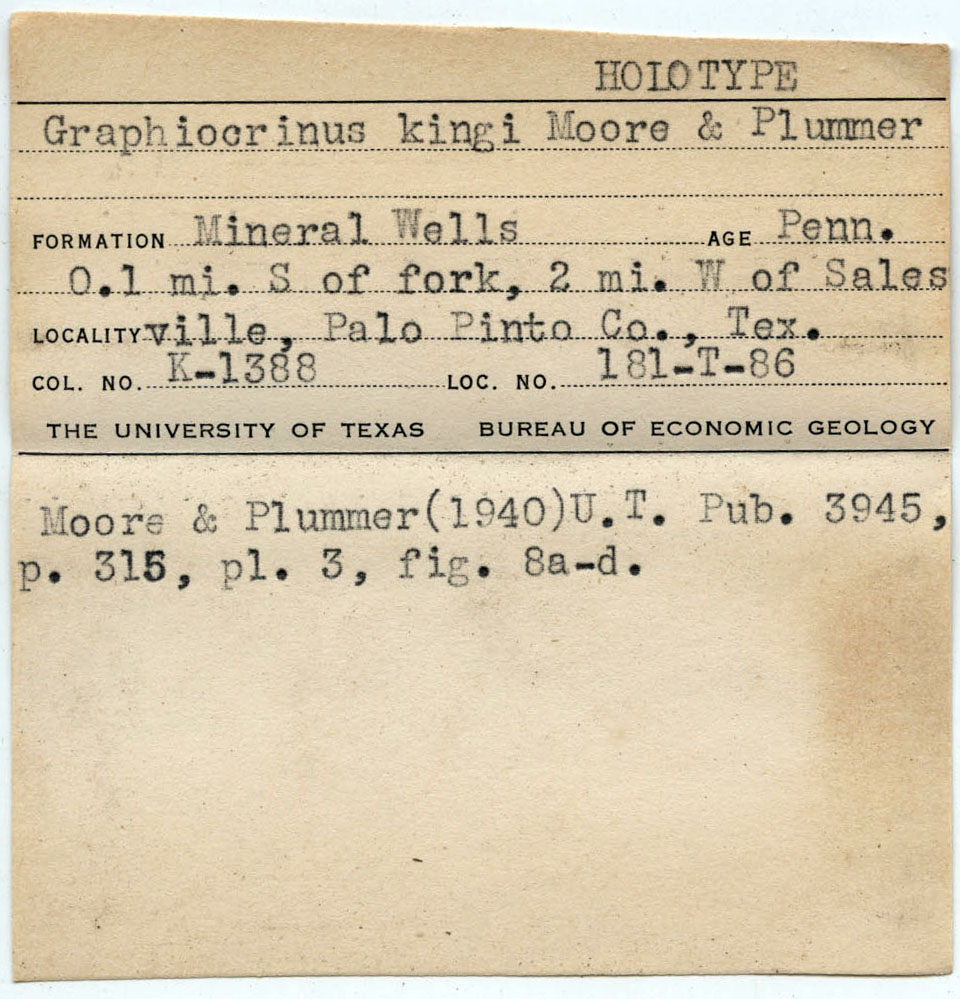 HOLOTYPE
Graphiocrinus kingi Moore & Plummer
FORMATION Mineral Wells AGE Penn.
0.1 mi. S of fork, 2 mi. W of Sales
LOCALITY ville, Palo Pinto Co., Tex.
COL. NO. K-1388 LOC. NO. 181-T-86
THE UNIVERSITY OF TEXAS BUREAU OF ECONOMIC GEOLOGY
Moore & Plummer(1940)U.T. Pub. 3945,
p. 315, pl. 3, fig. 8a-d.